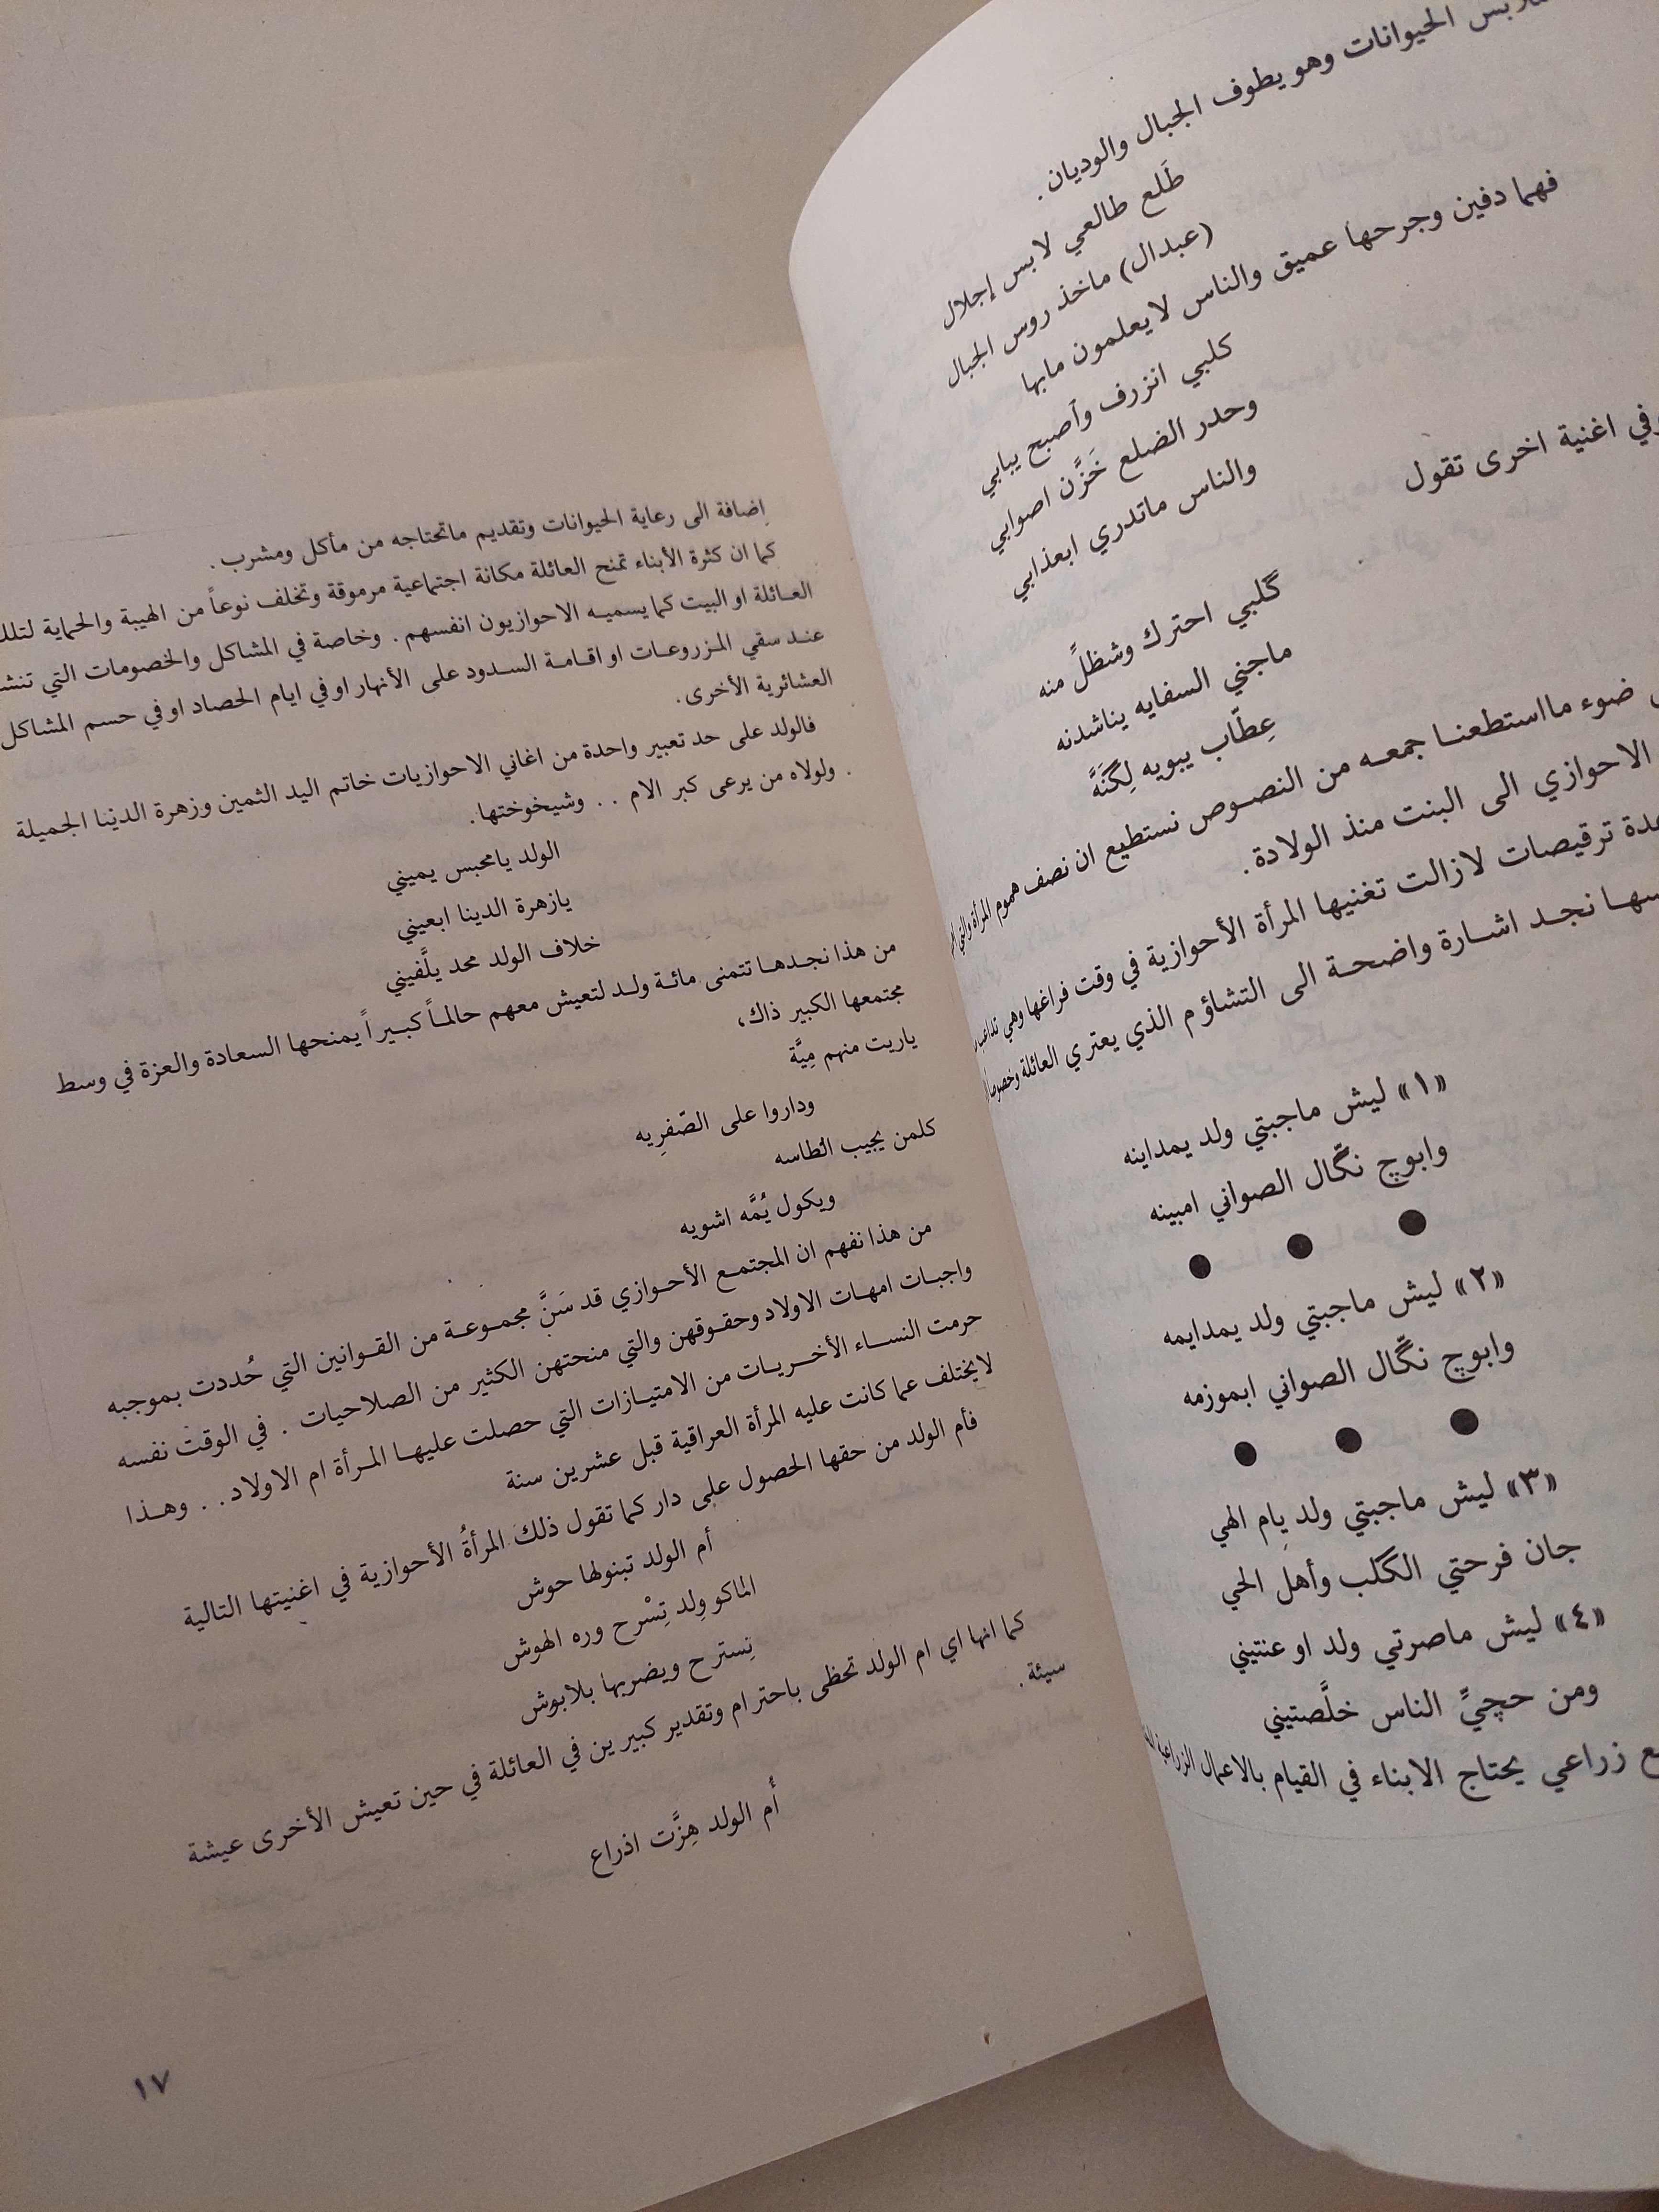 الحيوانات وهو يطوف الجبال والوديان.
طَلع طالعي لابس إجلال
(عبدال) ماخذ روس الجبال
فهما دفين وجرحها عميق والناس لايعلمون مابها
كلبي انزرف وأصبح يبابي
وحدر الضلع خَزَّن اصوابي
والناس ماتدري ابعذابي
وفي اغنية اخرى تقول
گلبي احترك وشظلً منه
ماجني السفايه يناشدنه
عِطّاب يبويه لِگنَهَّ
ضوء مااستطعنا جمعه من النصوص نستطيع ان نصف هموم المرأة والتي
الاحوازي الى البنت منذ الولادة.
ترقيصات لازالت تغنيها المرأة الأحوازية في وقت فراغها وهي
نجد اشارة واضحة الى التشاؤم الذي يعتري العائلة وخصوصاً
«١» ليش ماجبتي ولد يمداينه
وابوچ نگّال الصواني امبينه
● ● ●
«٢» ليش ماجبتي ولد يمدايمه
وابوچ نگّال الصواني ابموزمه
● ● ●
«٣» ليش ماجبتي ولد يِام الهي
جان فرحتي الگلب وأهل الحي
«٤» ليش ماصرتي ولد او عنتيني
ومن حچيِّ الناس خلَّصتيني
زراعي يحتاج الابناء في القيام بالاعمال الزراعية
إضافة الى رعاية الحيوانات وتقديم ماتحتاجه من مأكل ومشرب.
كما ان كثرة الأبناء تمنح العائلة مكانة اجتماعية مرموقة وتخلف نوعاً من الهيبة والحماية لتلك
العائلة او البيت كما يسميه الاحوازيون انفسهم. وخاصة في المشاكل والخصومات التي
عند سقي المزروعات او اقامة السدود على الأنهار او في ايام الحصاد او في حسم المشاكل
العشائرية الأخرى.
فالولد على حد تعبير واحدة من اغاني الاحوازيات خاتم اليد الثمين وزهرة الدينا الجميلة
. ولولاه من يرعى كبر الام . . وشيخوختها.
الولد يامحبس يميني
يازهرة الدينا ابعيني
خلاف الولد محد يلَّفيني
من هذا نجدها تتمنى مائة ولد لتعيش معهم حالماً كبيراً يمنحها السعادة والعزة في وسط
مجتمعها الكبير ذاك،
ياريت منهم مِيَّة
وداروا على الصّفرِيه
كلمن يجيب الطاسه
ويكول يُمَّه اشويه
من هذا نفهم ان المجتمع الأحوازي قد سَنَّ مجموعة من القوانين التي حُددت بموجبه
واجبات امهات الاولاد وحقوقهن والتي منحتهن الكثير من الصلاحيات . في الوقت نفسه
حرمت النساء الأخريات من الامتيازات التي حصلت عليها المرأة ام الاولاد. . وهذا
لايختلف عما كانت عليه المرأة العراقية قبل عشرين سنة
فأم الولد من حقها الحصول على دار كما تقول ذلك المرأةُ الأحوازية في اغنيتها التالية
أم الولد تبنولها حوش
الماكو وِلد تِسْرح وره الهوش
نِسترح ويضربها بلابوش
كما انها اي ام الولد تحظى باحترام وتقدير كبيرين في العائلة في حين تعيش الأخرى عيشة
سيئة.
أُم الولد هِزَّت اذراع
١٧